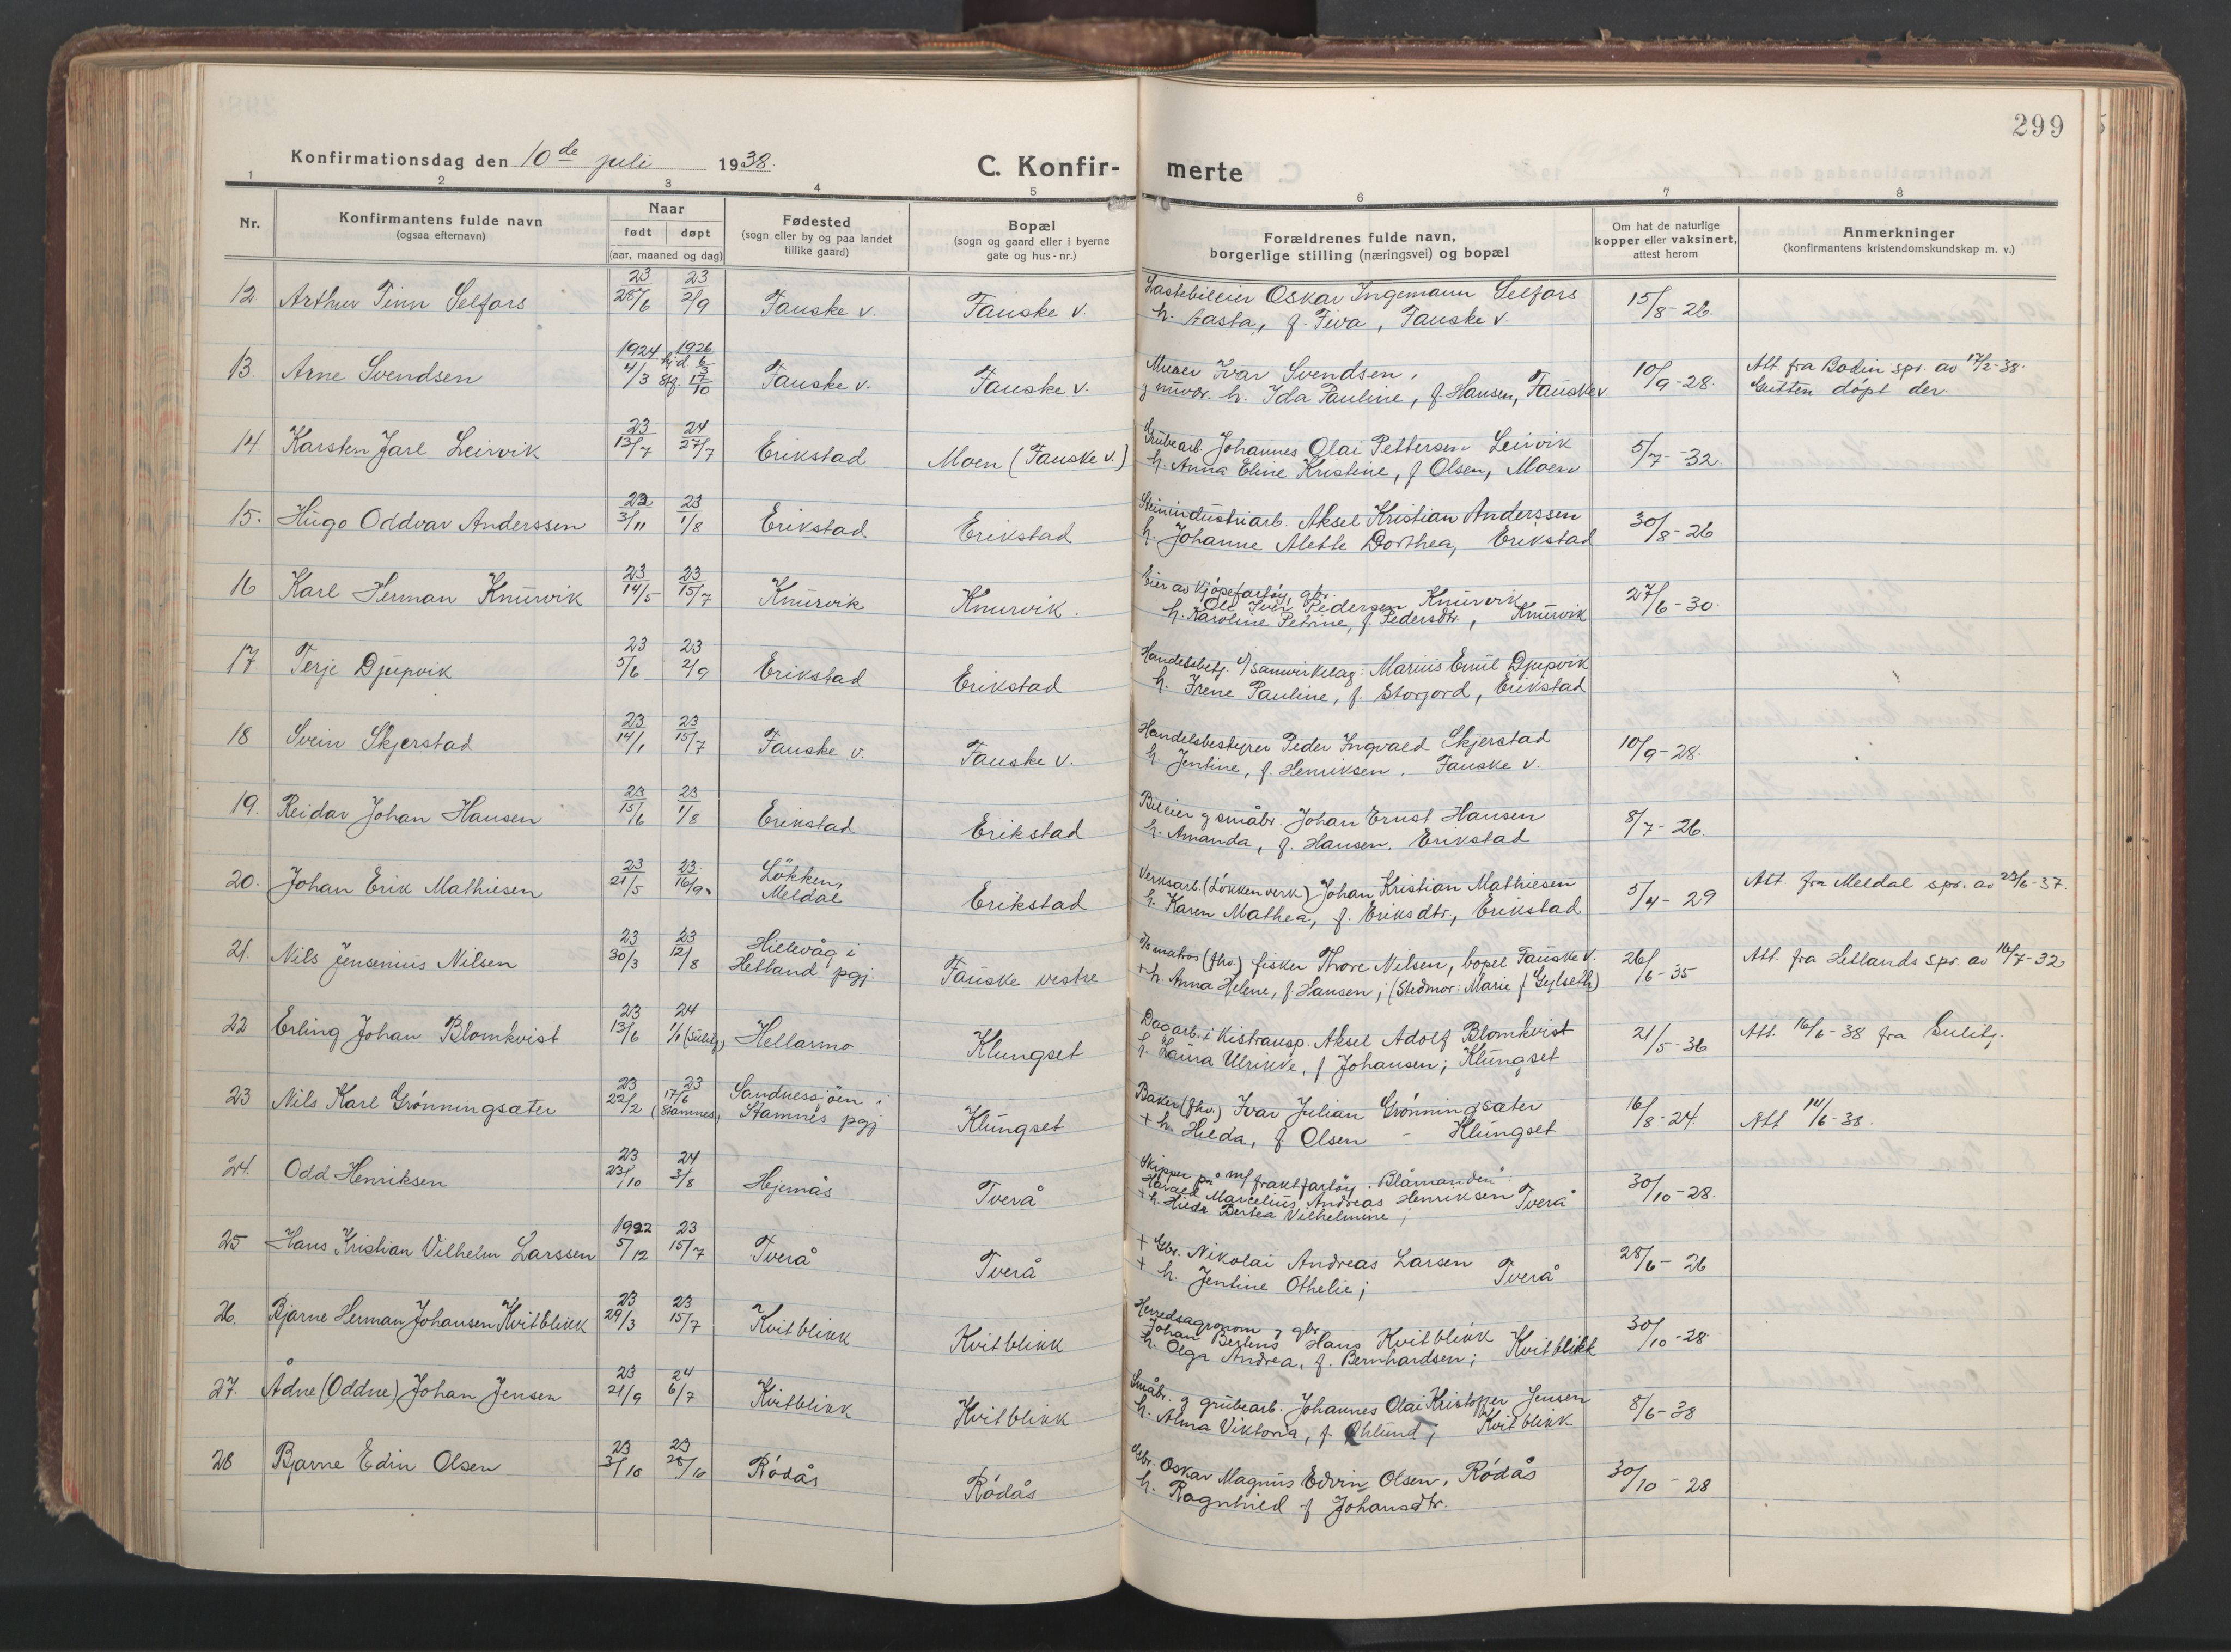 299
Konfirmationsdag den 10de juli 1938.
C. Konfirmerte
1 2 3 4 5 6 7 8
Nr.
Konfirmantens fulde navn
(ogsaa efternavn)
Naar
født døpt
(aar, maaned og dag)
Fødested
(sogn eller by og paa landet
tillike gaard)
Bopæl
(sogn og gaard eller i byerne
gate og hus-nr.)
Forældrenes fulde navn,
borgerlige stilling (næringsvei) og bopæl
Om hat de naturlige
kopper eller vaksinert,
attest herom
Anmerkninger
(konfirmantens kristendomskundskap m. v.)
12 Arthur Finn Selfors 23 28/6 23 2/9 Fauske v. Fauske v.
Lastebileier Oskar Ingemann Selfors
h. Aasta, f. Fiva, Fauske v.
15/8-26.
13. Arne Svendsen 1924 4/3 1926 hjd. 6/3 stf. 17/10 Fauske v. Fauske v.
Murer Ivar Svendsen,
h. Ida Pauline, f. Hansen, Fauske v
10/9-28.
Att fra Bodin spr. av 17/2-38.
Gutten døpt der
14. Karsten Jarl Leirvik 23 13/7 24 27/7 Erikstad Moen (Fauske v.)
Grubearb. Johannes Olai Pettersen Leirvik
h. Anna Eline Kristine, f Olsen, Moen
5/7-32.
15. Hugo Oddvar Anderssen 22 3/11 23 1/8 Erikstad Erikstad
Steinindustriarb. Aksel Kristian Anderssen
h. Johanne Alette Dorthea, Erikstad
30/8-26
16 Karl Herman Knurvik 23 14/5 23 15/7 Knurvik Knurvik.
Eier av kjøpefartøy, gbr.
Ole Iver Pedersen Knurvik
h. Karoline Petrine, f. Pedersdtr, Knurvik
27/6-30.
17. Terje Djupvik 23 5/6 23 2/9 Erikstad Erikstad
Handelsbetj. i/samvirkelag: Marius Emil Djupvik
h. Irene Pauline, f. Storjord, Erikstad
18 Svein Skjerstad 23 14/1 23 15/7 Fauske v. Fauske v.
Handelsbestyrer Peder Ingvald Skjerstad
h. Jentine, f. Henriksen. Fauske v.
10/9-28.
19. Reidar Johan Hansen 23 15/6 23 1/8 Erikstad Erikstad
Bileier g småbr. Johan Ernst Hansen
h. Amanda, f. Hansen. Erikstad
8/7-26.
20. Johan Erik Mathiesen 23 21/5 23 16/9 Løkken, Meldal Erikstad
Verksarb. (Løkken verk) Johan Kristian Mathiesen
h. Karen Mathea, f. Eriksdtr., Erikstad
5/4-29
Att. fra Meldal spr. av 23/6-37.
21. Nils Jensenius Nilsen 23 30/3 23 12/8 Hillevåg i Hetland pgj. Fauske vestre
D/s matros (fhv.) fisker Thore Nilsen, bopel Fauske v.
+ h. Anna Helene, f. Hansen; (Stedmor: Marie f Gylseth)
26/6-35
Att. fra Hetlands spr. av 16/7-32
22 Erling Johan Blomkvist 23 13/6 24 1/1 (Sulitj.) Hellarmo Klungset
Dagarb. i Kistransp. Aksel Adolf Blomkvist
h. Laura Ulrikke, f Johansen; Klungset
21/5-36
Att. 16/6-38 fra Sulitj.
23 Nils Karl Grønningsæter 23 22/2 23 17/6 (Stamnes) Sandnessjøen i Stamnes pgj Klungset
Baker (fhv.) Ivar Julian Grønningsæter
+ h. Hilda, f Olsen - Klungset
16/8-24.
Att 14/6-38.
24. Odd Henriksen 23 23/10 24 3/8 Hjemås Tverå
Skipper på m/ fraktfartøy "Blåmanden"
Harald Marcelius Andreas Henriksen Tverå
+ h. Hilda Bertea Vilhelmine;
30/10-28.
25 Hans Kristian Vilhelm Larssen 1922 5/12 23 15/7 Tverå Tverå
+ Gbr. Nikolai Andreas Larsen
+ h. Jentine Othelie; Tverå
28/6-26
26. Bjarne Herman Johansen Kvitblikk 23 29/3 23 15/7 Kvitblikk Kvitblikk
Herredsagronom g gbr.
Johan Bertens Hans Kvitblikk Kvitblikk
h. Olga Andrea, f. Bernhardsen;
30/10-28.
27. Ådne (Oddne) Johan Jensen 23 21/9 24 6/7 Kvitblikk Kvitblikk
Småbr. g grubearb. Johannes Olai Kristoffer Jensen
h. Alma Viktoria, f. Øhlund; Kvitblikk
8/6-38
28 Bjarne Edin Olsen 23 3/10 23 28/10 Rødås Rødås
Gbr. Oskar Magnus Edvin Olsen, Rødås
h. Ragnhild f Johansdtr.
30/10-28